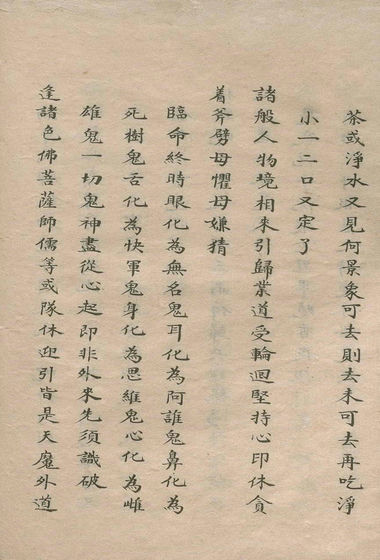 茶或淨水又見何景象可去則去未可去再吃淨
小一二口又定了
諸般人物境相來引歸業道受輪迴堅持心印休貪
着斧劈毋懼毋嫌猜
臨命終時眼化為無名鬼耳化為阿誰鬼鼻化為
死樹鬼舌化為快軍鬼身化為思維鬼心化為雌
雄鬼一切鬼神盡從心起即非外來先須識破
逢諸色佛菩薩師儒等或隊休迎引皆是天魔外道